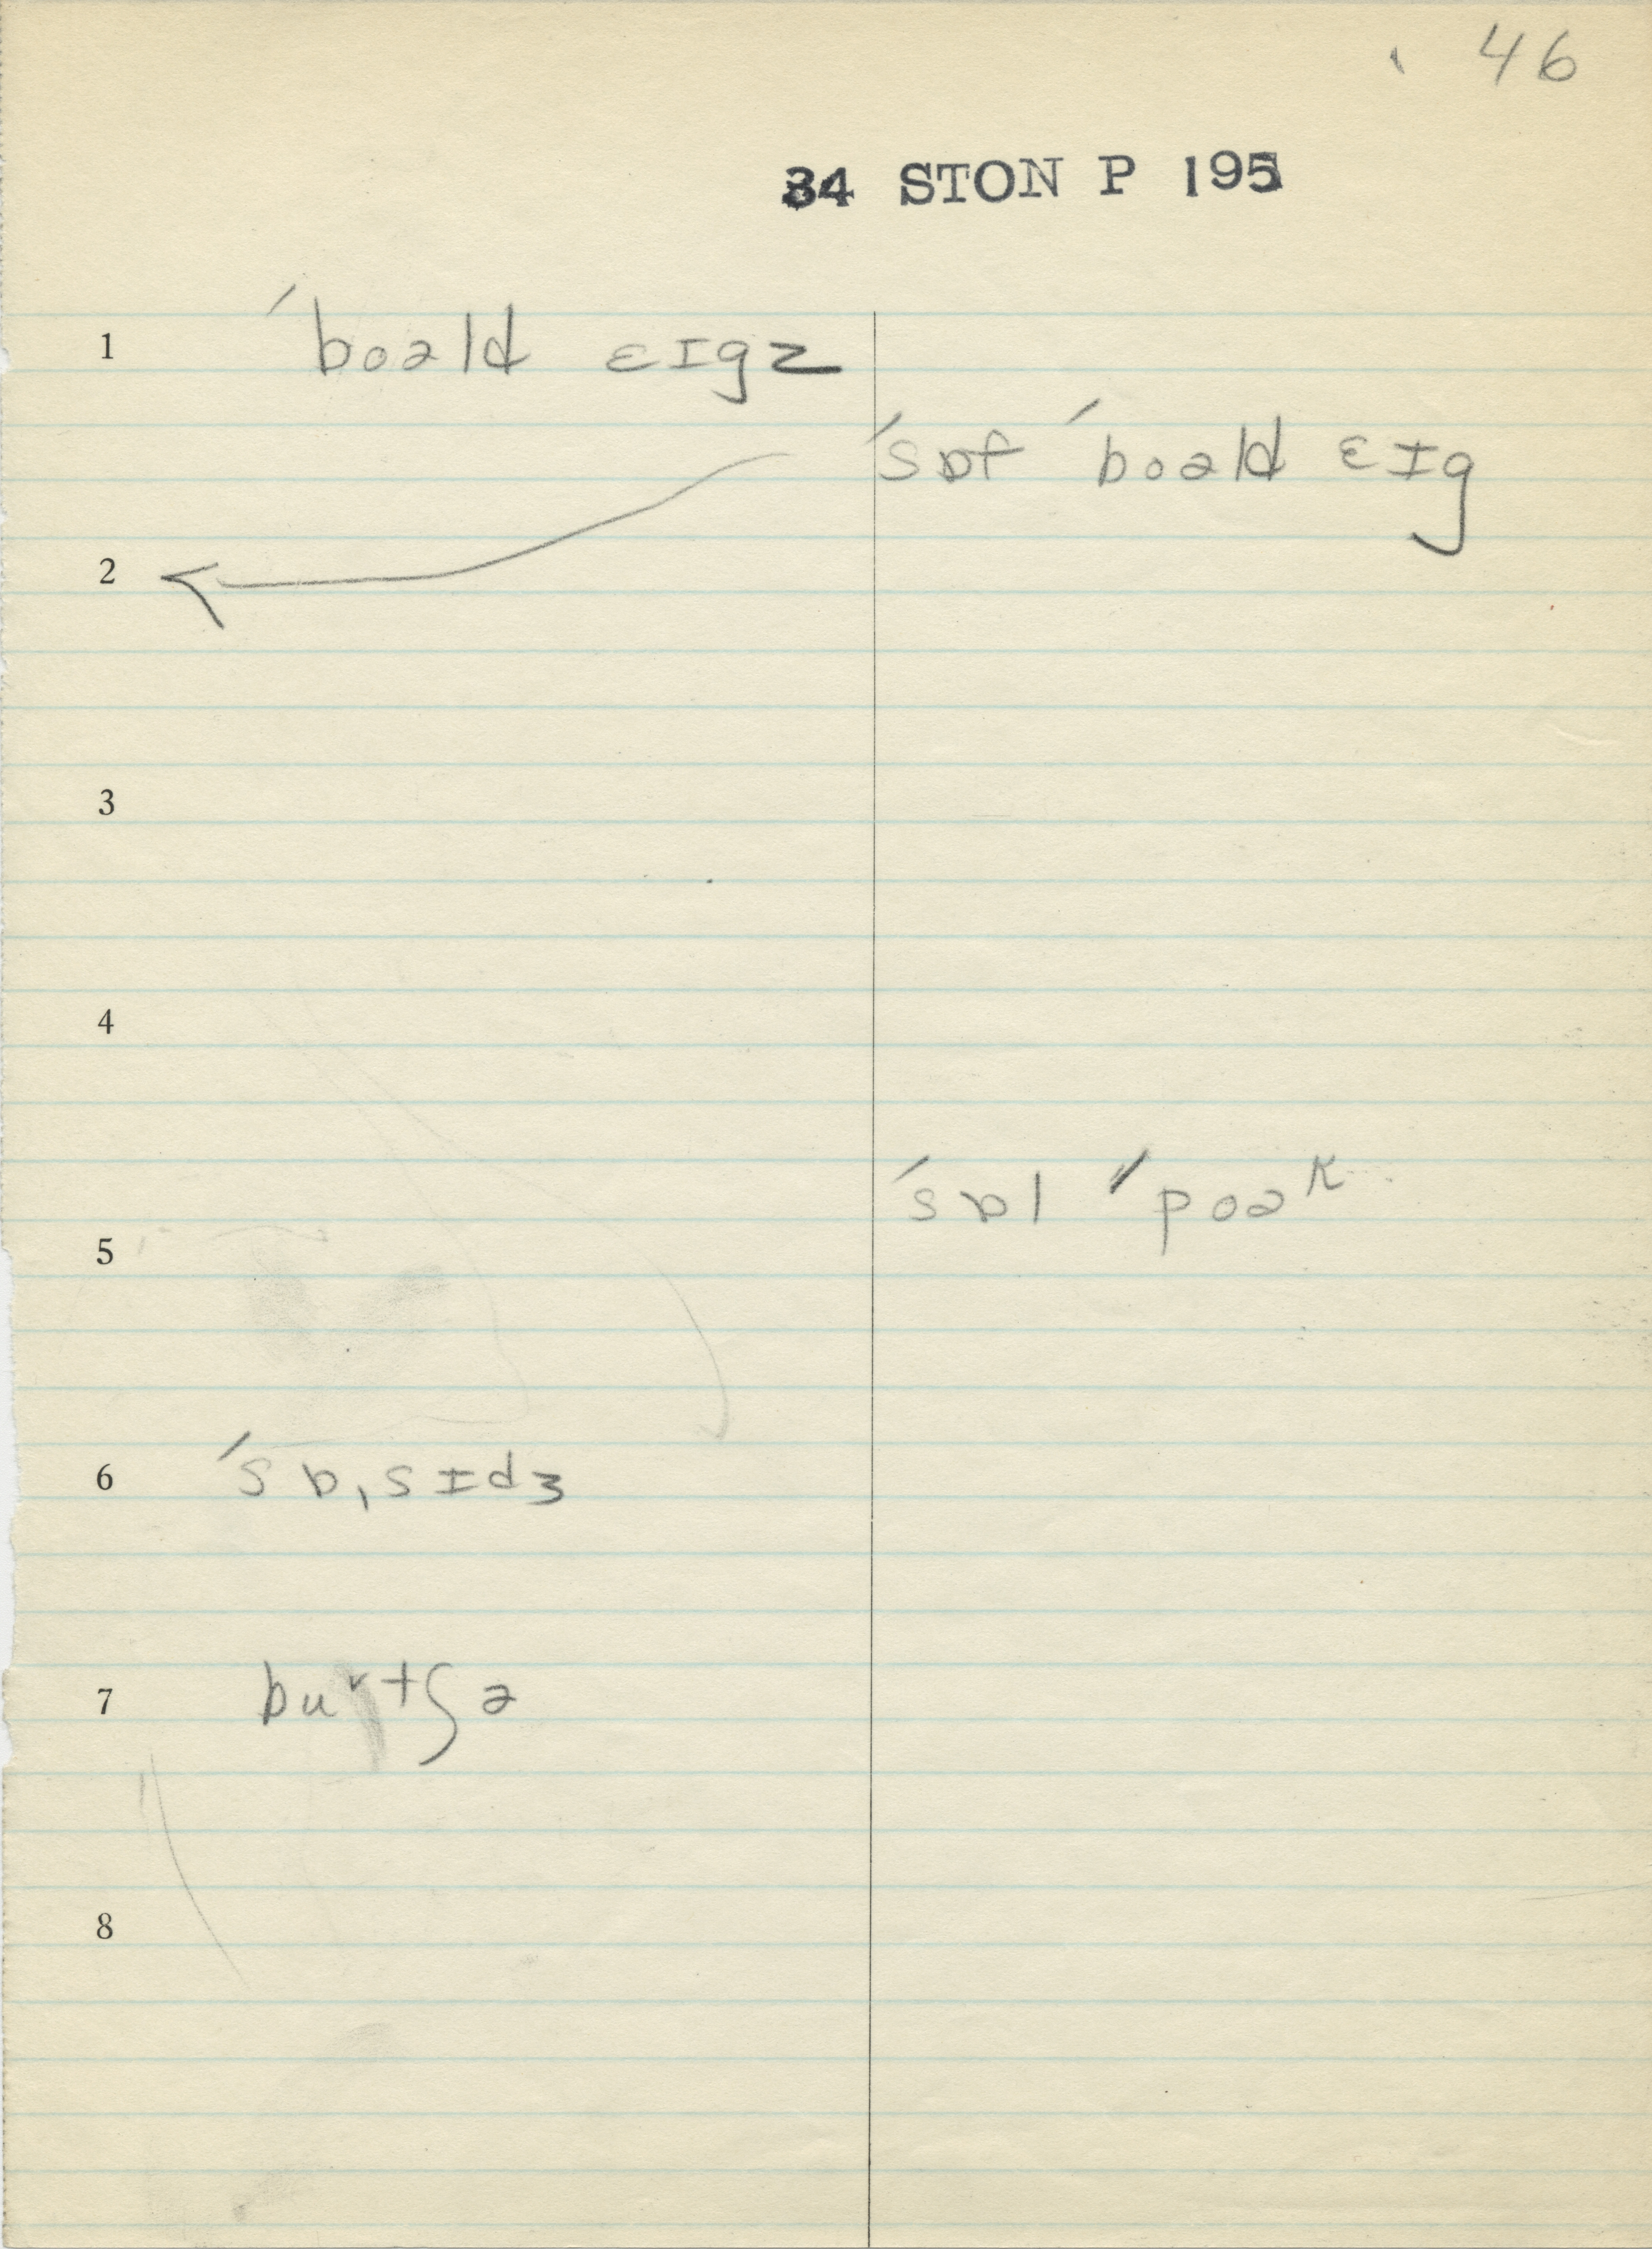 46
34 STON P 195
1 ˈboəld ɛɪgz
ˈsɒf ˈboəld ɛɪg
2
3
4
ˈsɒl ˈpoəᵏ
5
6 ˈsɒˌsɪdʒ
7 buᵛtʃə
8